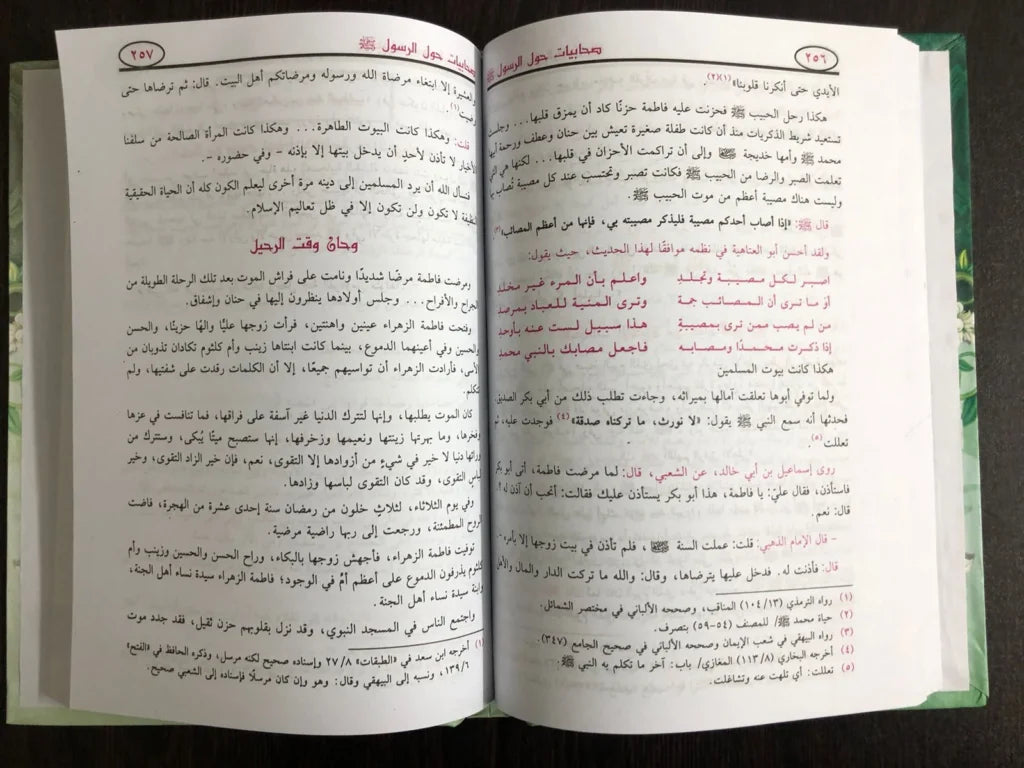 ٢٥٦
صحابيات حول الرسول ﷺ
الأيدي حتى أنكرنا قلوبنا» (١)(٢).
هكذا رحل الحبيب ﷺ فحزنت عليه فاطمة حزنًا كاد أن يمزق قلبها... وجلست
تستعيد شريط الذكريات منذ أن كانت طفلة صغيرة تعيش بين حنان وعطف ورحمة أبيها
محمد ﷺ وأمها خديجة وإلى أن تراكمت الأحزان في قلبها... لكنها هي التي
تعلمت الصبر والرضا من الحبيب ﷺ فكانت تصبر وتحتسب عند كل مصيبة تُصاب بها
وليست هناك مصيبة أعظم من موت الحبيب ﷺ.
قال ﷺ: «إذا أصاب أحدكم مصيبة فليذكر مصيبته بي، فإنها من أعظم المصائب» (٣)
ولقد أحسن أبو العتاهية في نظمه موافقًا لهذا الحديث، حيث يقول:
اصبر لكل مصيبة وتجلد واعلم بأن المرء غير مخلد
أوَ ما ترى أن المصائب جمة وترى المنية للعباد بمرصد
من لم يصب ممن ترى بمصيبةٍ هذا سبيل لست عنه بأوحد
إذا ذكرت محمدًا ومصابه فاجعل مصابك بالنبي محمد
هكذا كانت بيوت المسلمين
ولما توفي أبوها تعلقت آمالها بميراثه، وجاءت تطلب ذلك من أبي بكر الصديق
فحدثها أنه سمع النبي ﷺ يقول: «لا نورث، ما تركناه صدقة» (٤) فوجدت عليه، ثم
تعللت (٥).
روى إسماعيل بن أبي خالد، عن الشعبي، قال: لما مرضت فاطمة، أتى أبو بكر
فاستأذن، فقال عليّ: يا فاطمة، هذا أبو بكر يستأذن عليك فقالت: أتحب أن آذن له؟.
قال: نعم.
- قال الإمام الذهبي: قلت: عملت السنة ، فلم تأذن في بيت زوجها إلا بأمره -
قال: فأذنت له. فدخل عليها يترضاها، وقال: والله ما تركت الدار والمال والأهل
(١) رواه الترمذي (١٠٤/١٣) المناقب، وصححه الألباني في مختصر الشمائل.
(٢) حياة محمد ﷺ/ للمصنف (٥٤-٥٩) بتصرف.
(٣) رواه البيهقي في شعب الإيمان وصححه الألباني في صحيح الجامع (٣٤٧).
(٤) أخرجه البخاري (١١٣/٨) المغازي/ باب: آخر ما تكلم به النبي ﷺ.
(٥) تعللت: أي تلهت عنه وتشاغلت.
صحابيات حول الرسول ﷺ
٢٥٧
والعشيرة إلا ابتغاء مرضاة الله ورسوله ومرضاتكم أهل البيت. قال: ثم ترضاها حتى
رضيت (١).
قلت: وهكذا كانت البيوت الطاهرة... وهكذا كانت المرأة الصالحة من سلفنا
الأخيار لا تأذن لأحدٍ أن يدخل بيتها إلا بإذنه - وفي حضوره -.
فنسأل الله أن يرد المسلمين إلى دينه مرة أخرى ليعلم الكون كله أن الحياة الحقيقية
النظيفة لا تكون ولن تكون إلا في ظل تعاليم الإسلام.
وحان وقت الرحيل
ومرضت فاطمة مرضًا شديدًا ونامت على فراش الموت بعد تلك الرحلة الطويلة من
الجراح والأفراح... وجلس أولادها ينظرون إليها في حنان وإشفاق.
وفتحت فاطمة الزهراء عينين واهنتين، فرأت زوجها عليًّا والهًا حزينًا، والحسن
والحسين وفي أعينهما الدموع، بينما كانت ابنتاها زينب وأم كلثوم تكادان تذوبان من
الأسى، فأرادت الزهراء أن تواسيهم جميعًا، إلا أن الكلمات رقدت على شفتيها، ولم
تتكلم.
كان الموت يطلبها، وإنها لتترك الدنيا غير آسفة على فراقها، فما تنافست في عزها
وفخرها، وما بهرتها زينتها ونعيمها وزخرفها، إنها ستصبح ميتًا يُبكى، وستترك من
ورائها دنيا لا خير في شيءٍ من أزوادها إلا التقوى، نعم، فإن خير الزاد التقوى، وخير
لباس التقوى، وقد كان التقوى لباسها وزادها.
وفي يوم الثلاثاء، لثلاثٍ خلون من رمضان سنة إحدى عشرة من الهجرة، فاضت
الروح المطمئنة، ورجعت إلى ربها راضية مرضية.
توفيت فاطمة الزهراء، فأجهش زوجها بالبكاء، وراح الحسن والحسين وزينب وأم
كلثوم يذرفون الدموع على أعظم أمٍّ في الوجود؛ فاطمة الزهراء سيدة نساء أهل الجنة،
وابنة سيدة نساء أهل الجنة.
واجتمع الناس في المسجد النبوي، وقد نزل بقلوبهم حزن ثقيل، فقد جدد موت
(١) أخرجه ابن سعد في «الطبقات» ٢٧/٨ وإسناده صحيح لكنه مرسل، وذكره الحافظ في «الفتح»
١٣٩/٦، ونسبه إلى البيهقي وقال: وهو وإن كان مرسلًا فإسناده إلى الشعبي صحيح.